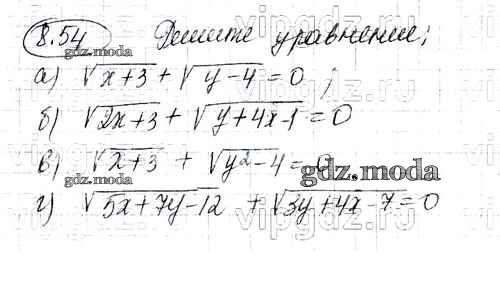 8.54 Решите уравнение;
gdz.moda
а) √x+3 + √y-4 = 0;
б) √2x+3 + √y+4x-1 = 0
в) √x+3 + √y²-4 = 0
gdz.moda
gdz.moda
г) √5x+7y-12 + √3y+4x-7 = 0